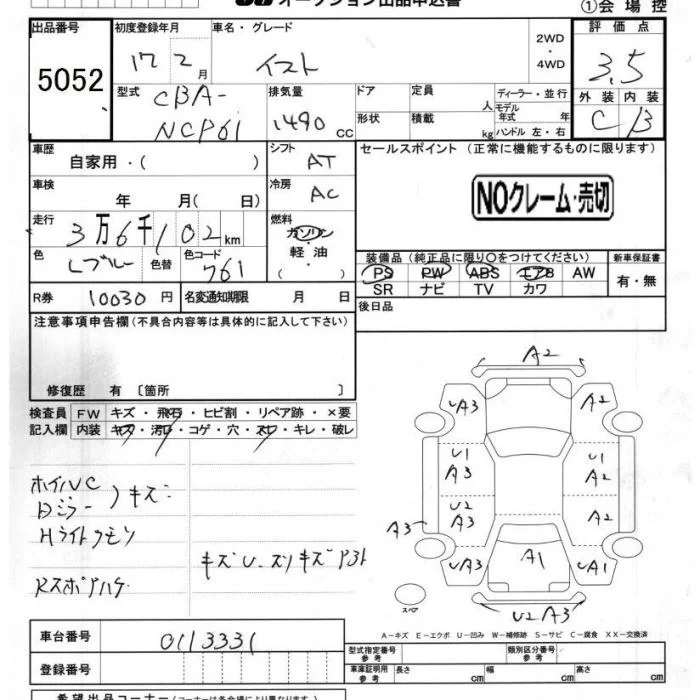 オークション出品申込書
①会場控
出品番号 初度登録年月 車名・グレード 評価点
5052 17 2月 イスト 2WD・4WD 3.5
型式 CBA-NCP61 排気量 1490 cc ドア 定員 人 ディーラー・並行 外装 内装
形状 積載 kg モデル年式 年 ハンドル 左・右 C B
車歴 自家用・( ) シフト AT セールスポイント (正常に機能するものに限ります)
車検 年 月(日) 冷房 AC NOクレーム・売切
走行 3万6千102km 燃料 ガソリン 軽・油 ( )
色 Lブルー 色替 色コード 761 装備品 (純正品に限り○をつけてください) 新車保証書
PS PW ABS エアB AW 有・無
R券 10030円 名変通知期限 月 日 SR ナビ TV カワ
注意事項申告欄(不具合内容等は具体的に記入して下さい) 後日品
修復歴 有 〔箇所 〕
検査員記入欄 FW キズ・飛石・ヒビ割・リペア跡・×要
内装 キズ・汚れ・コゲ・穴・スレ・キレ・破レ
ホイルC
Bミラー )キズ
Hライトクモリ
キズU.スリキズアト
Rスポアハゲ
A2
UA3 A2
U1 A3 U1 A2
U2 A3 A2
A3
UA3 A1 UA1
スペア
U2A3
A-キズ E-エクボ U-凹み W-補修跡 S-サビ C-腐食 XX-交換済
車台番号 0113331 型式指定番号 参考 類別区分番号 参考
登録番号 車庫証明用 参考 長さ cm 幅 cm 高さ cm
希望出品コーナー (コーナーは各会場により異なります)